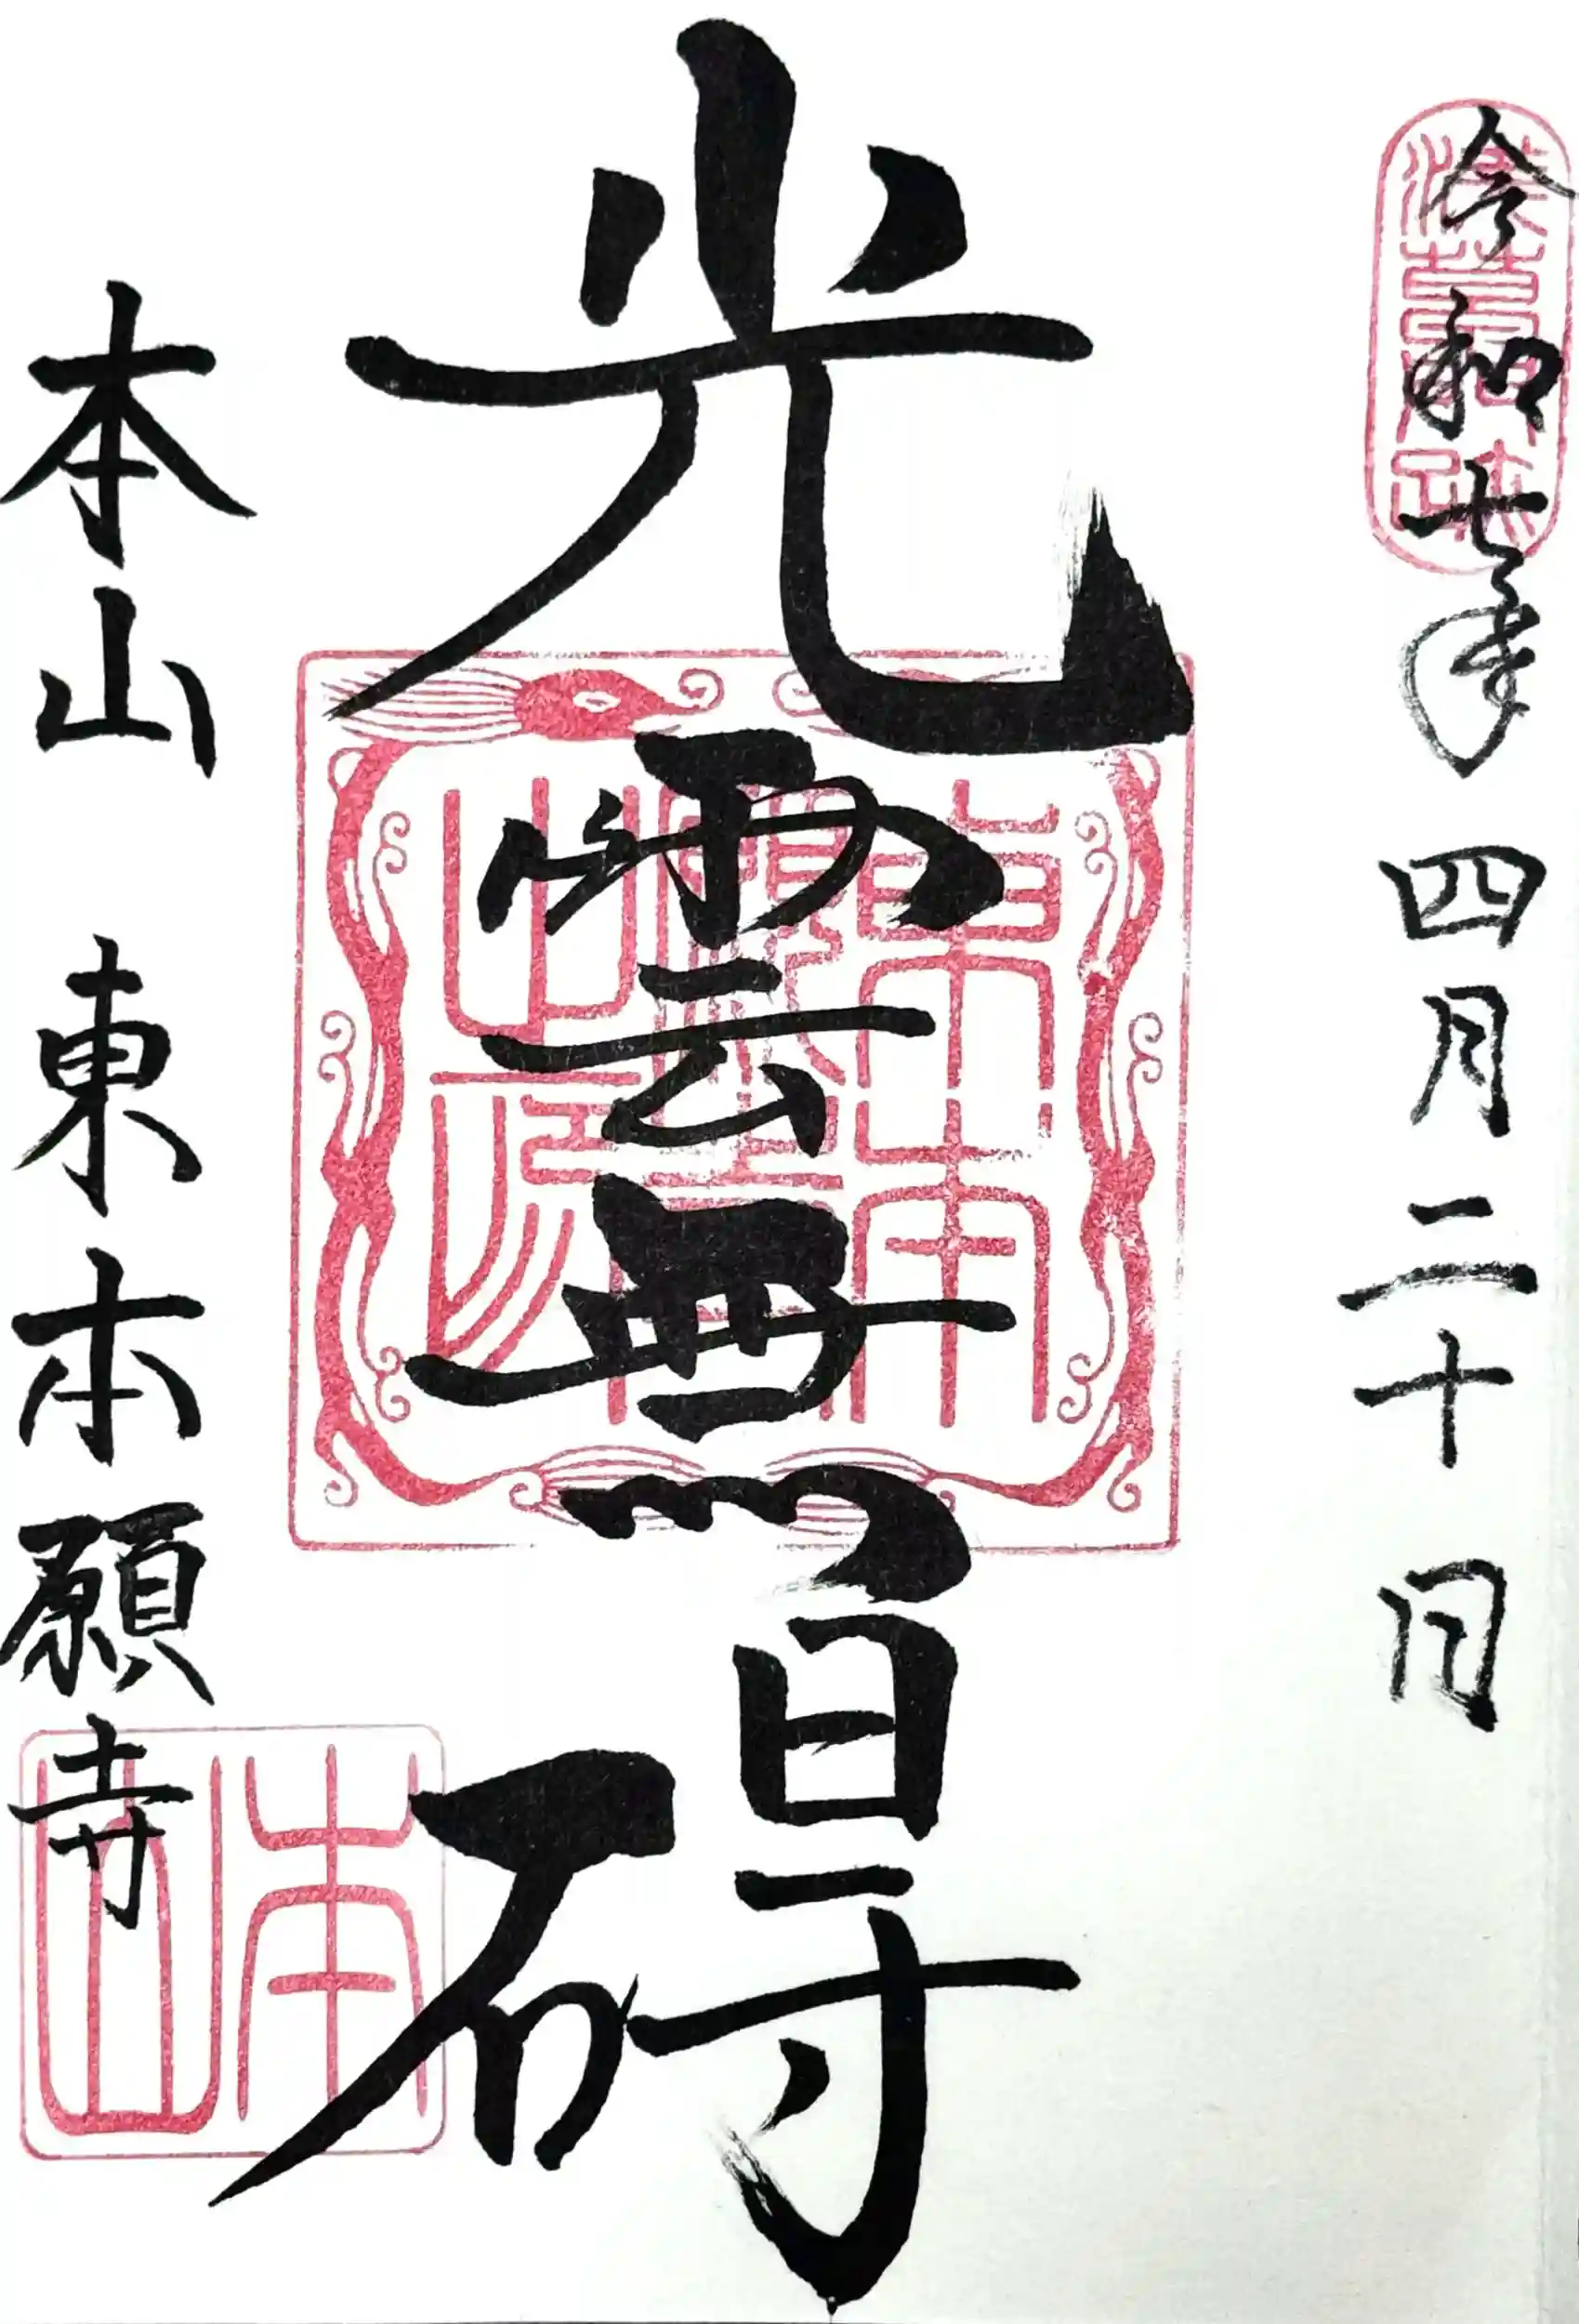 令和七年四月二十日
光雲無碍
本山東本願寺
本山